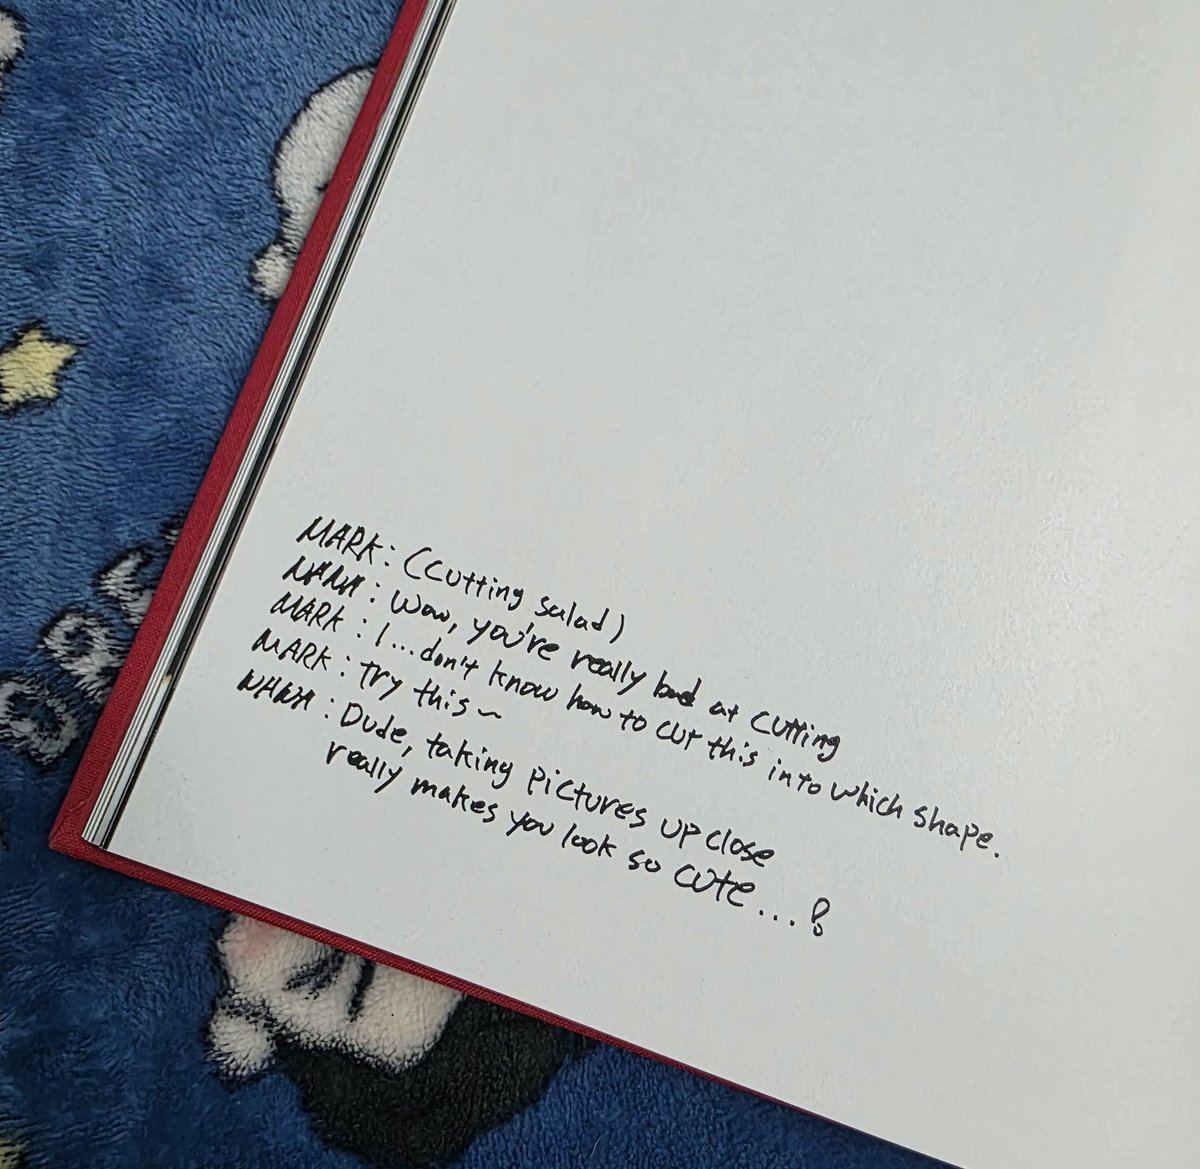 MARK: (Cutting salad)
NANA: Wow, you're really bad at cutting
MARK: I...don't know how to cut this into which shape.
MARK: Try this~
NANA: Dude, taking pictures up close
really makes you look so cute...!